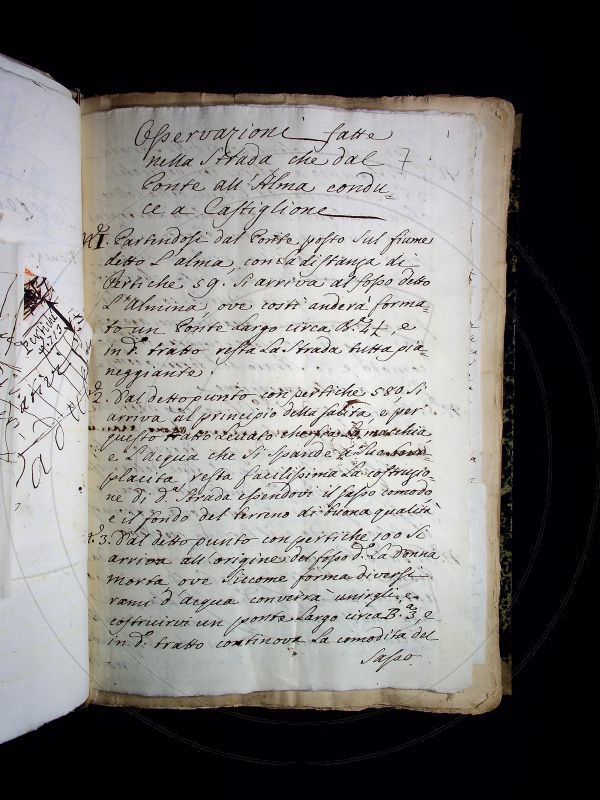 Osservazioni fatte
nella Strada che dal 7
Ponte all'Alma condu=
ce a Castiglione
N.º 1. Partendosi dal Ponte posto sul fiume
detto L'alma, con la distanza di
Pertiche 59. Si arriva al fosso detto
L'Almina ove costì anderà forma=
to un Ponte Largo circa B.ª 4 e
in d.º tratto resta La Strada tutta pia=
neggiante.
N.º 2. Dal detto punto con pertiche 589 Si
arriva al principio della salita, e per
questo tratto Levato che sia La macchia
e L'acqua che Si spande a
placita, resta facilissima La costruzio=
ne di d.ª Strada essendovi il sasso comodo,
e il fondo del terreno di buona qualità
N.º 3. Dal detto punto con pertiche 100 Si
arriva all'origine del fosso d.º La donna
morta, ove Siccome forma diversi
rami d'acqua converrà unirgli, e
costruirvi un ponte Largo circa B.ª 3, e
in d.º tratto continova La comodità del
Sasso